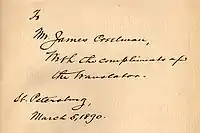 To
Mr James Creelman,
With the compliments of
the translator.
St. Petersburg,
March 5, 1890.